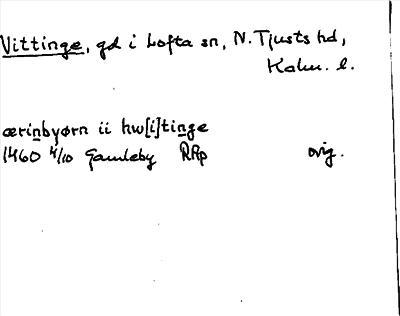 Vittinge, gd i Lofta sn, N. Tjusts hd,
Kalm. l.
ærinbyørn ii hw[i]tinge
1460 4/10 Gamleby RAp orig.